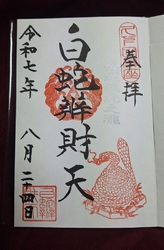 奉拝
白蛇辨財天
令和七年 八月二十四日